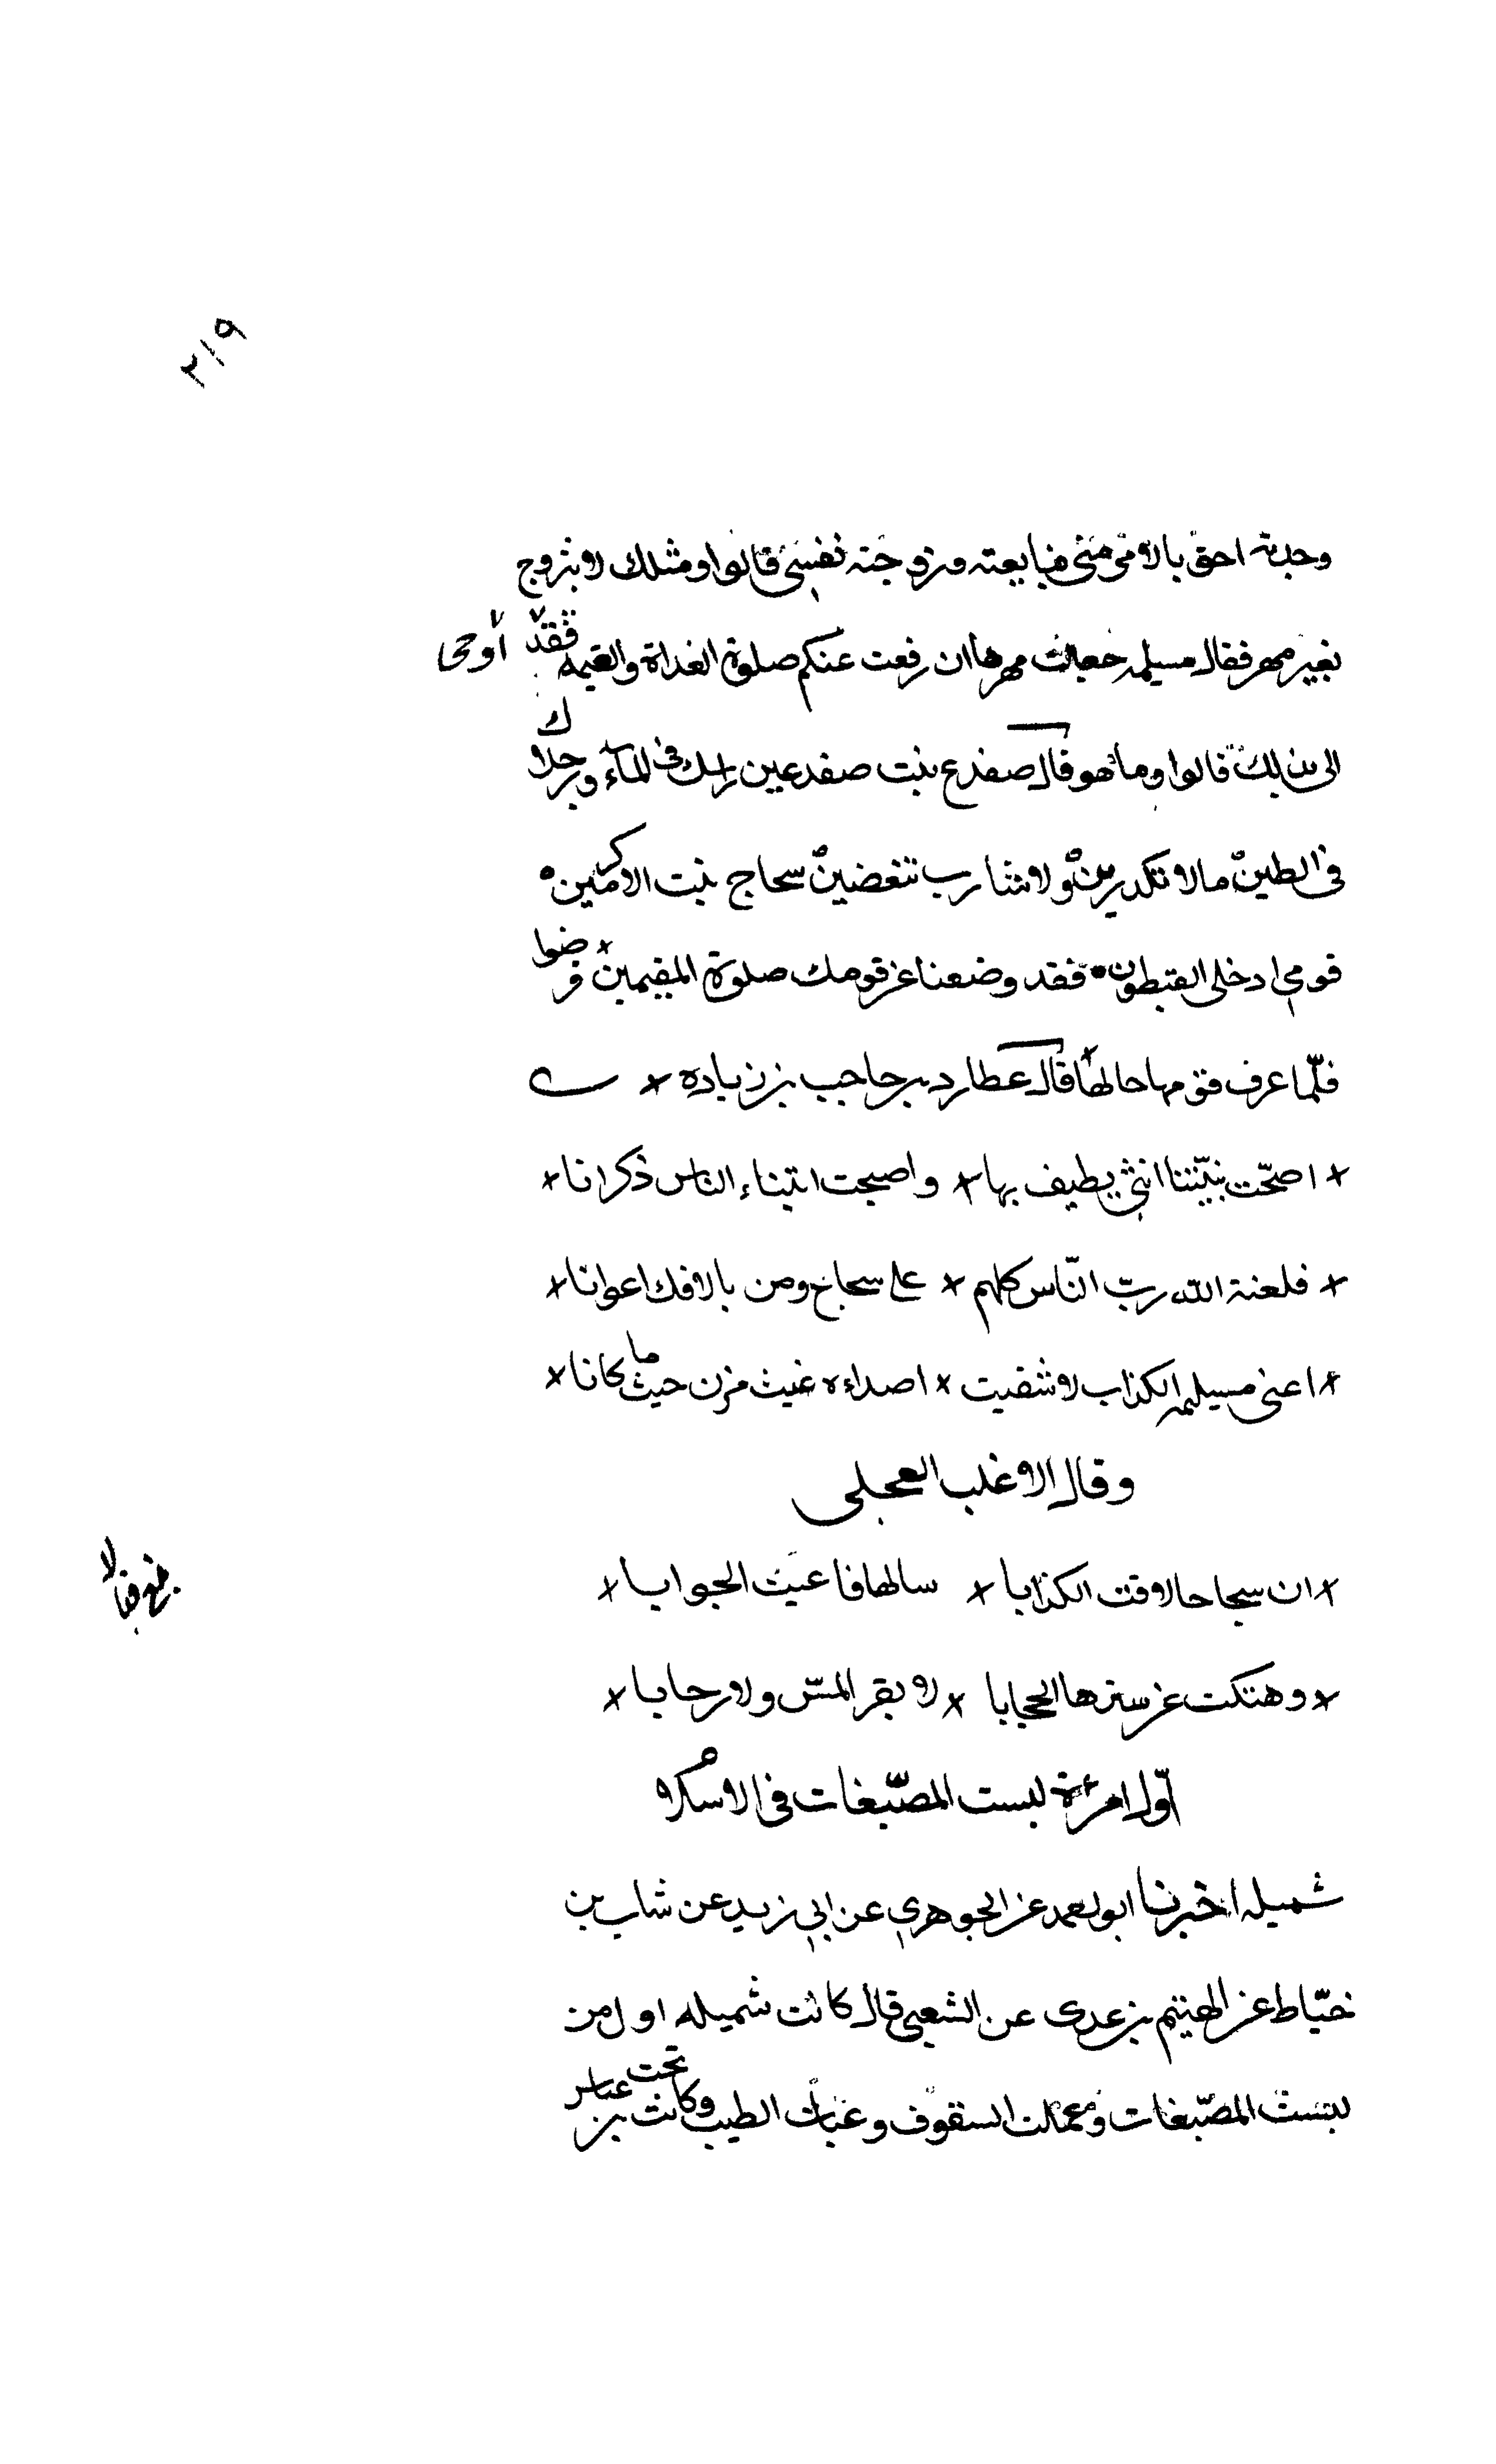 ٢١٩
وجدته احق بالامر منى فبايعته وزوجته نفسي قالوا ومثلك لا يتزوج
بغير مهر فقال مسيلمه جعلت مهرها ان رفعت عنكم صلوة الغداة والعتمه فقد أوحى
الى بذلك قالوا وما هو قال ضفدع بنت ضفدعين راسك في المآء ورجلاك
في الطين ما لا تكدرين ولا شارب تنغضين سجاج بنت الاكرمين
قومي ادخلى القيطون فقد وضعنا عن قومك صلوة المقيمين فرضوا
فلمّا عرف قومها حالها قال عطارد بن حاجب بن زياده
اضحّت نبيّتنا انثى يطيف بها واصبحت انبياء الناس ذكرانا
فلعنة الله ربّ النّاس كلهم على سجاح ومن بالافك اعوانا
اعنى مسيلمه الكذاب لا شقيت اصداءه غيث مزن حيث ما كانا
وقال الاغلب العجلى
ان سجاحا لاقت الكذابا سالها فاعيت الجوابا
وهتكت عن سترها الحجابا لا بقر المسّ ولا رحابا
اوّل امرءة لبست المصبّغات في الاسلام
شميله اخبرنا ابو احمد عن الجوهري عن ابي زيد عن شاب بن
خيّاط عن الهيثم بن عدى عن الشعبي قال كانت شميله اول من
لبست المصبّغات وعملت السقوف وعبات الطيب وكانت تحت عباس بن